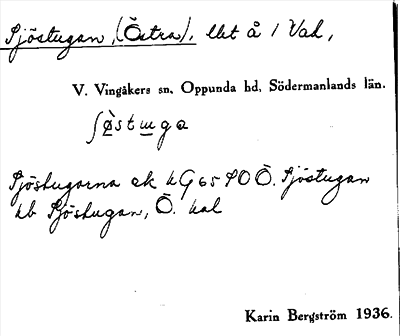 Sjöstugan, (Östra), lht å 1 Vad,
V. Vingåkers sn, Oppunda hd, Södermanlands län.
Sjöstugorna ek hG65 SO Ö. Sjöstugan
hb Sjöstugan, Ö. kal
Karin Bergström 1936.